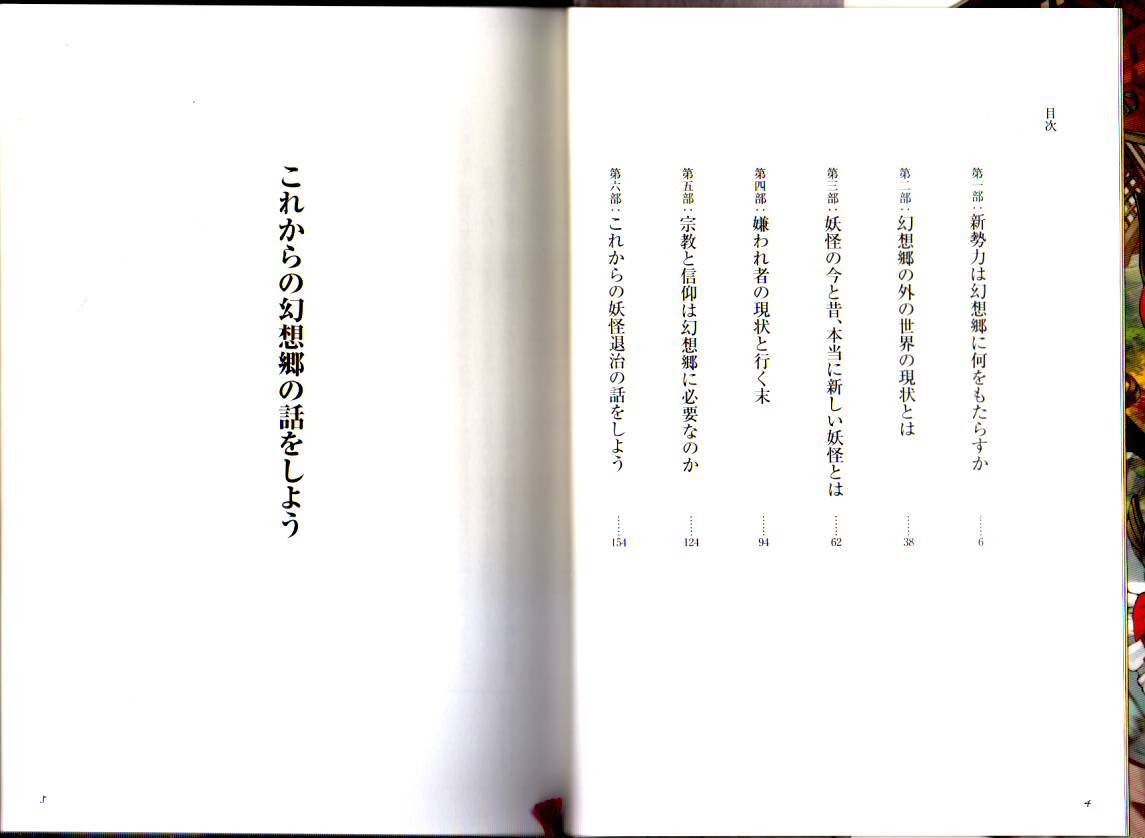 目次
第一部：新勢力は幻想郷に何をもたらすか ……6
第二部：幻想郷の外の世界の現状とは ……38
第三部：妖怪の今と昔、本当に新しい妖怪とは ……62
第四部：嫌われ者の現状と行く末 ……94
第五部：宗教と信仰は幻想郷に必要なのか ……124
第六部：これからの妖怪退治の話をしよう ……154
4
これからの幻想郷の話をしよう
5